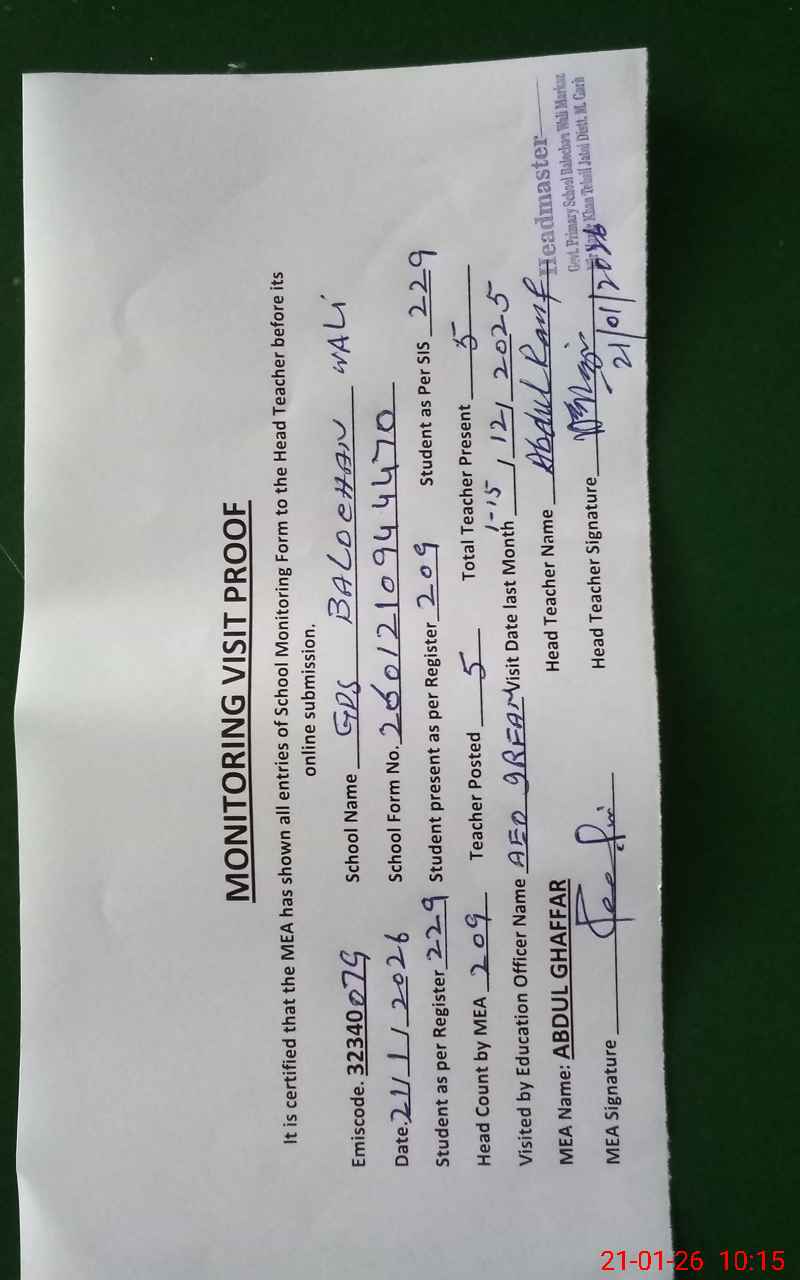 MONITORING VISIT PROOF
It is certified that the MEA has shown all entries of School Monitoring Form to the Head Teacher before its
online submission.
Emiscode. 32340079 School Name GPS BALOCHAN WALI
Date. 21/1/2026 School Form No. 260121094470
Student as per Register 229 Student present as per Register 209 Student as Per SIS 229
Head Count by MEA 209 Teacher Posted 5 Total Teacher Present 5
Visited by Education Officer Name AEO IRFAN Visit Date last Month 1-15/12/2025
MEA Name: ABDUL GHAFFAR Head Teacher Name Abdul Rauf
MEA Signature Head Teacher Signature
21/01/2026
Headmaster
Govt. Primary School Balochan Wali Markaz
Khan Tehsil Jatoi Distt. M. Garh
21-01-26 10:15